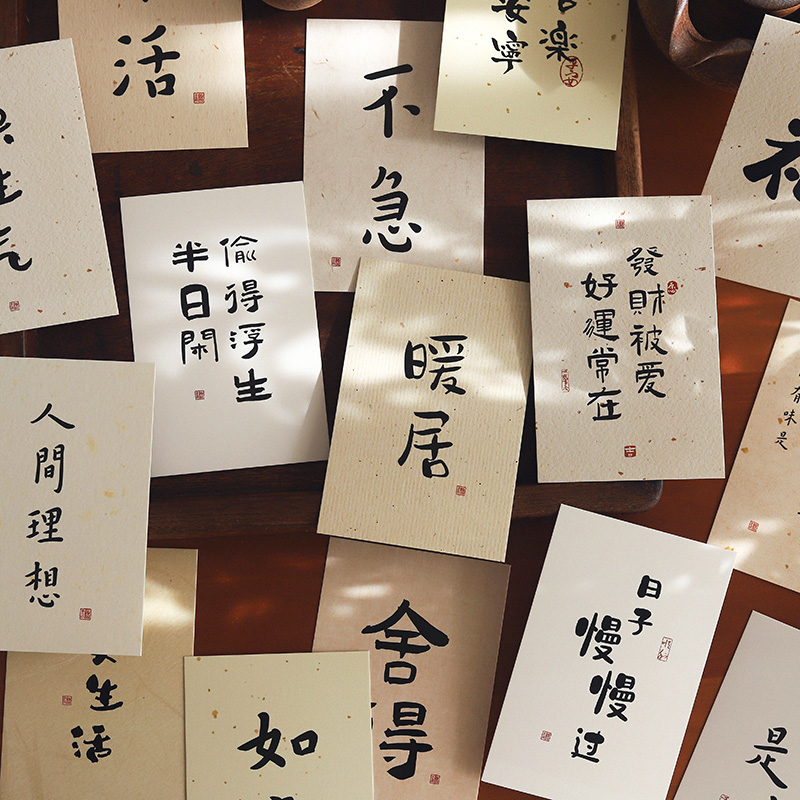 活
不急
安寧
生气
偷得浮生
半日閑
發財被愛
好運常在
暖居
味是
人間理想
生活
舍得
如
日子
慢慢
过
是